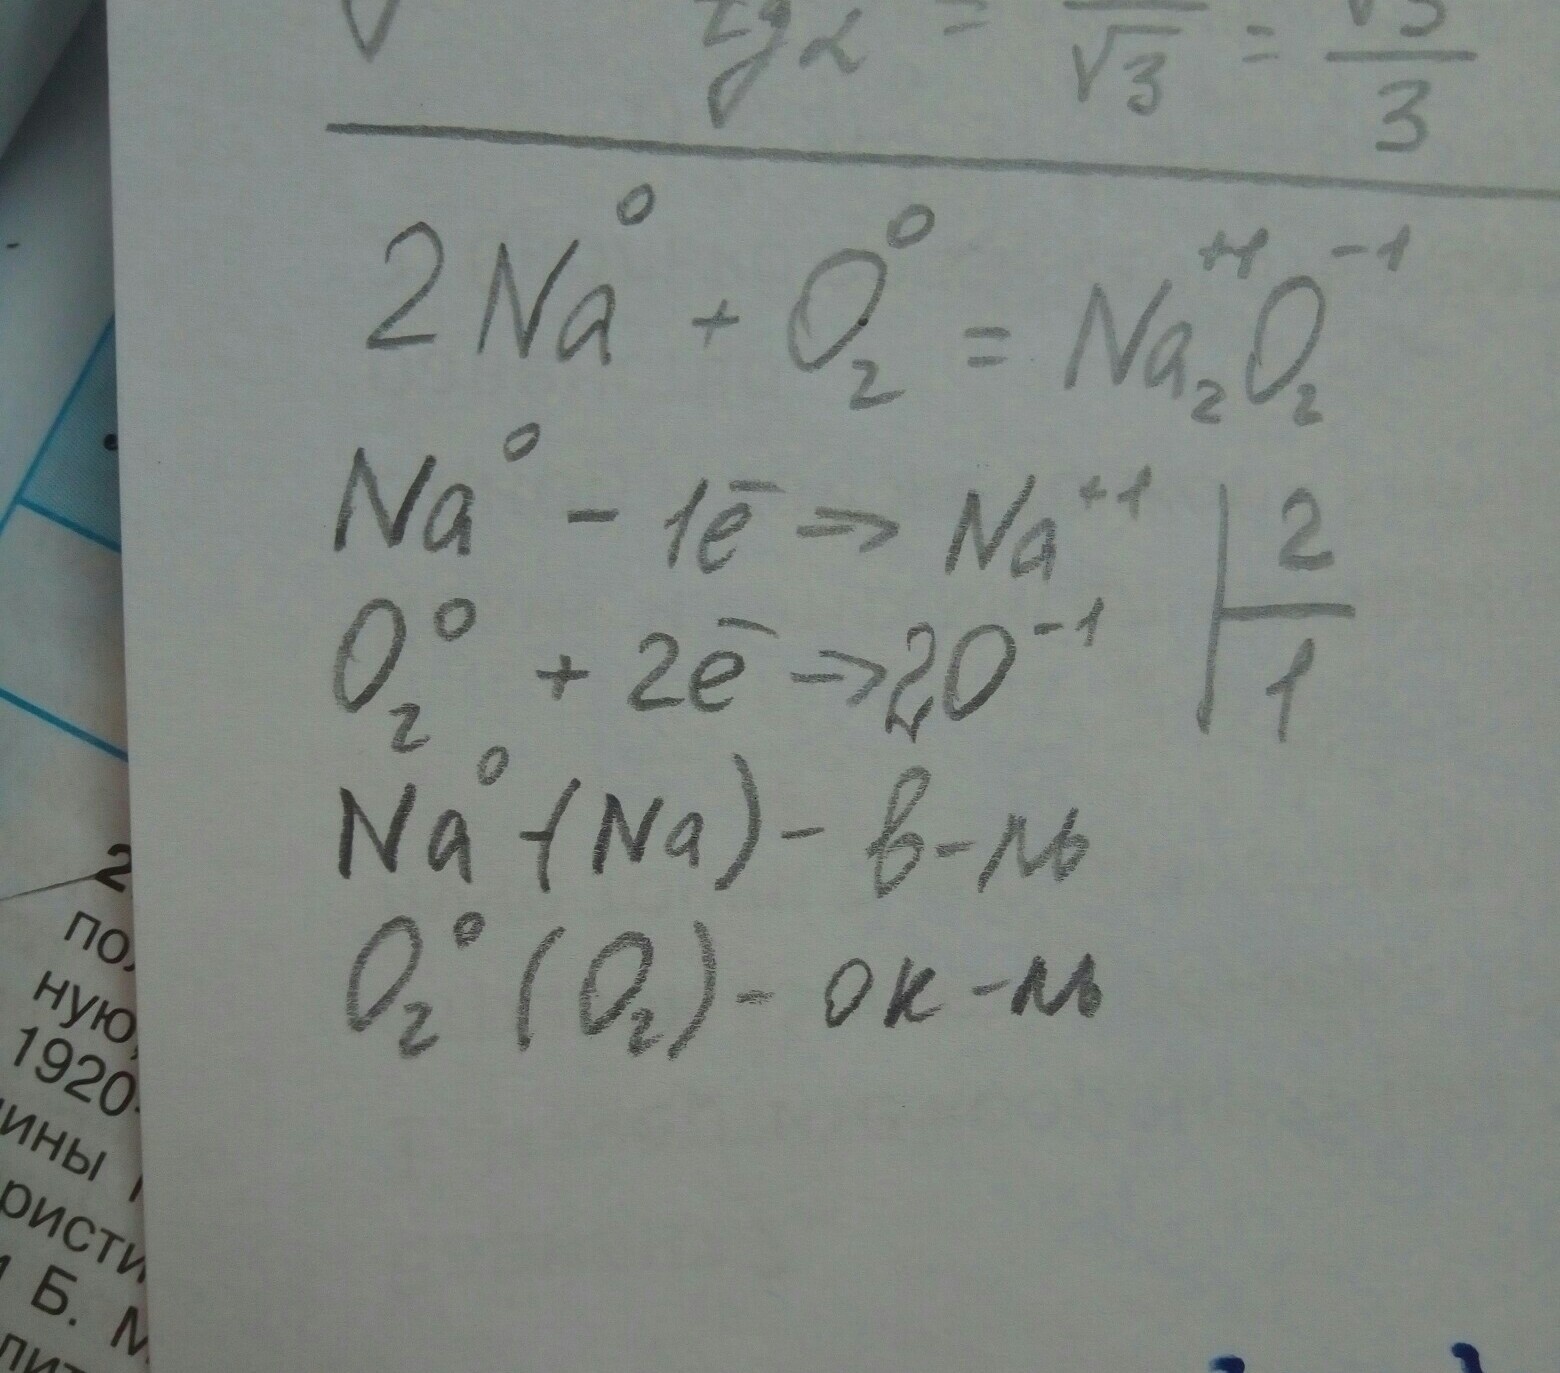 tg α = /√3 = √3/3
2Na⁰ + O₂⁰ = Na₂⁺¹O₂⁻¹
Na⁰ - 1e̅ => Na⁺¹ | 2
O₂⁰ + 2e̅ => 2O⁻¹ | 1
Na⁰ - (Na) - в-ль
O₂⁰ (O₂) - ок-ль
2
по
ную,
1920-
ины
ристи
Б. М
лит